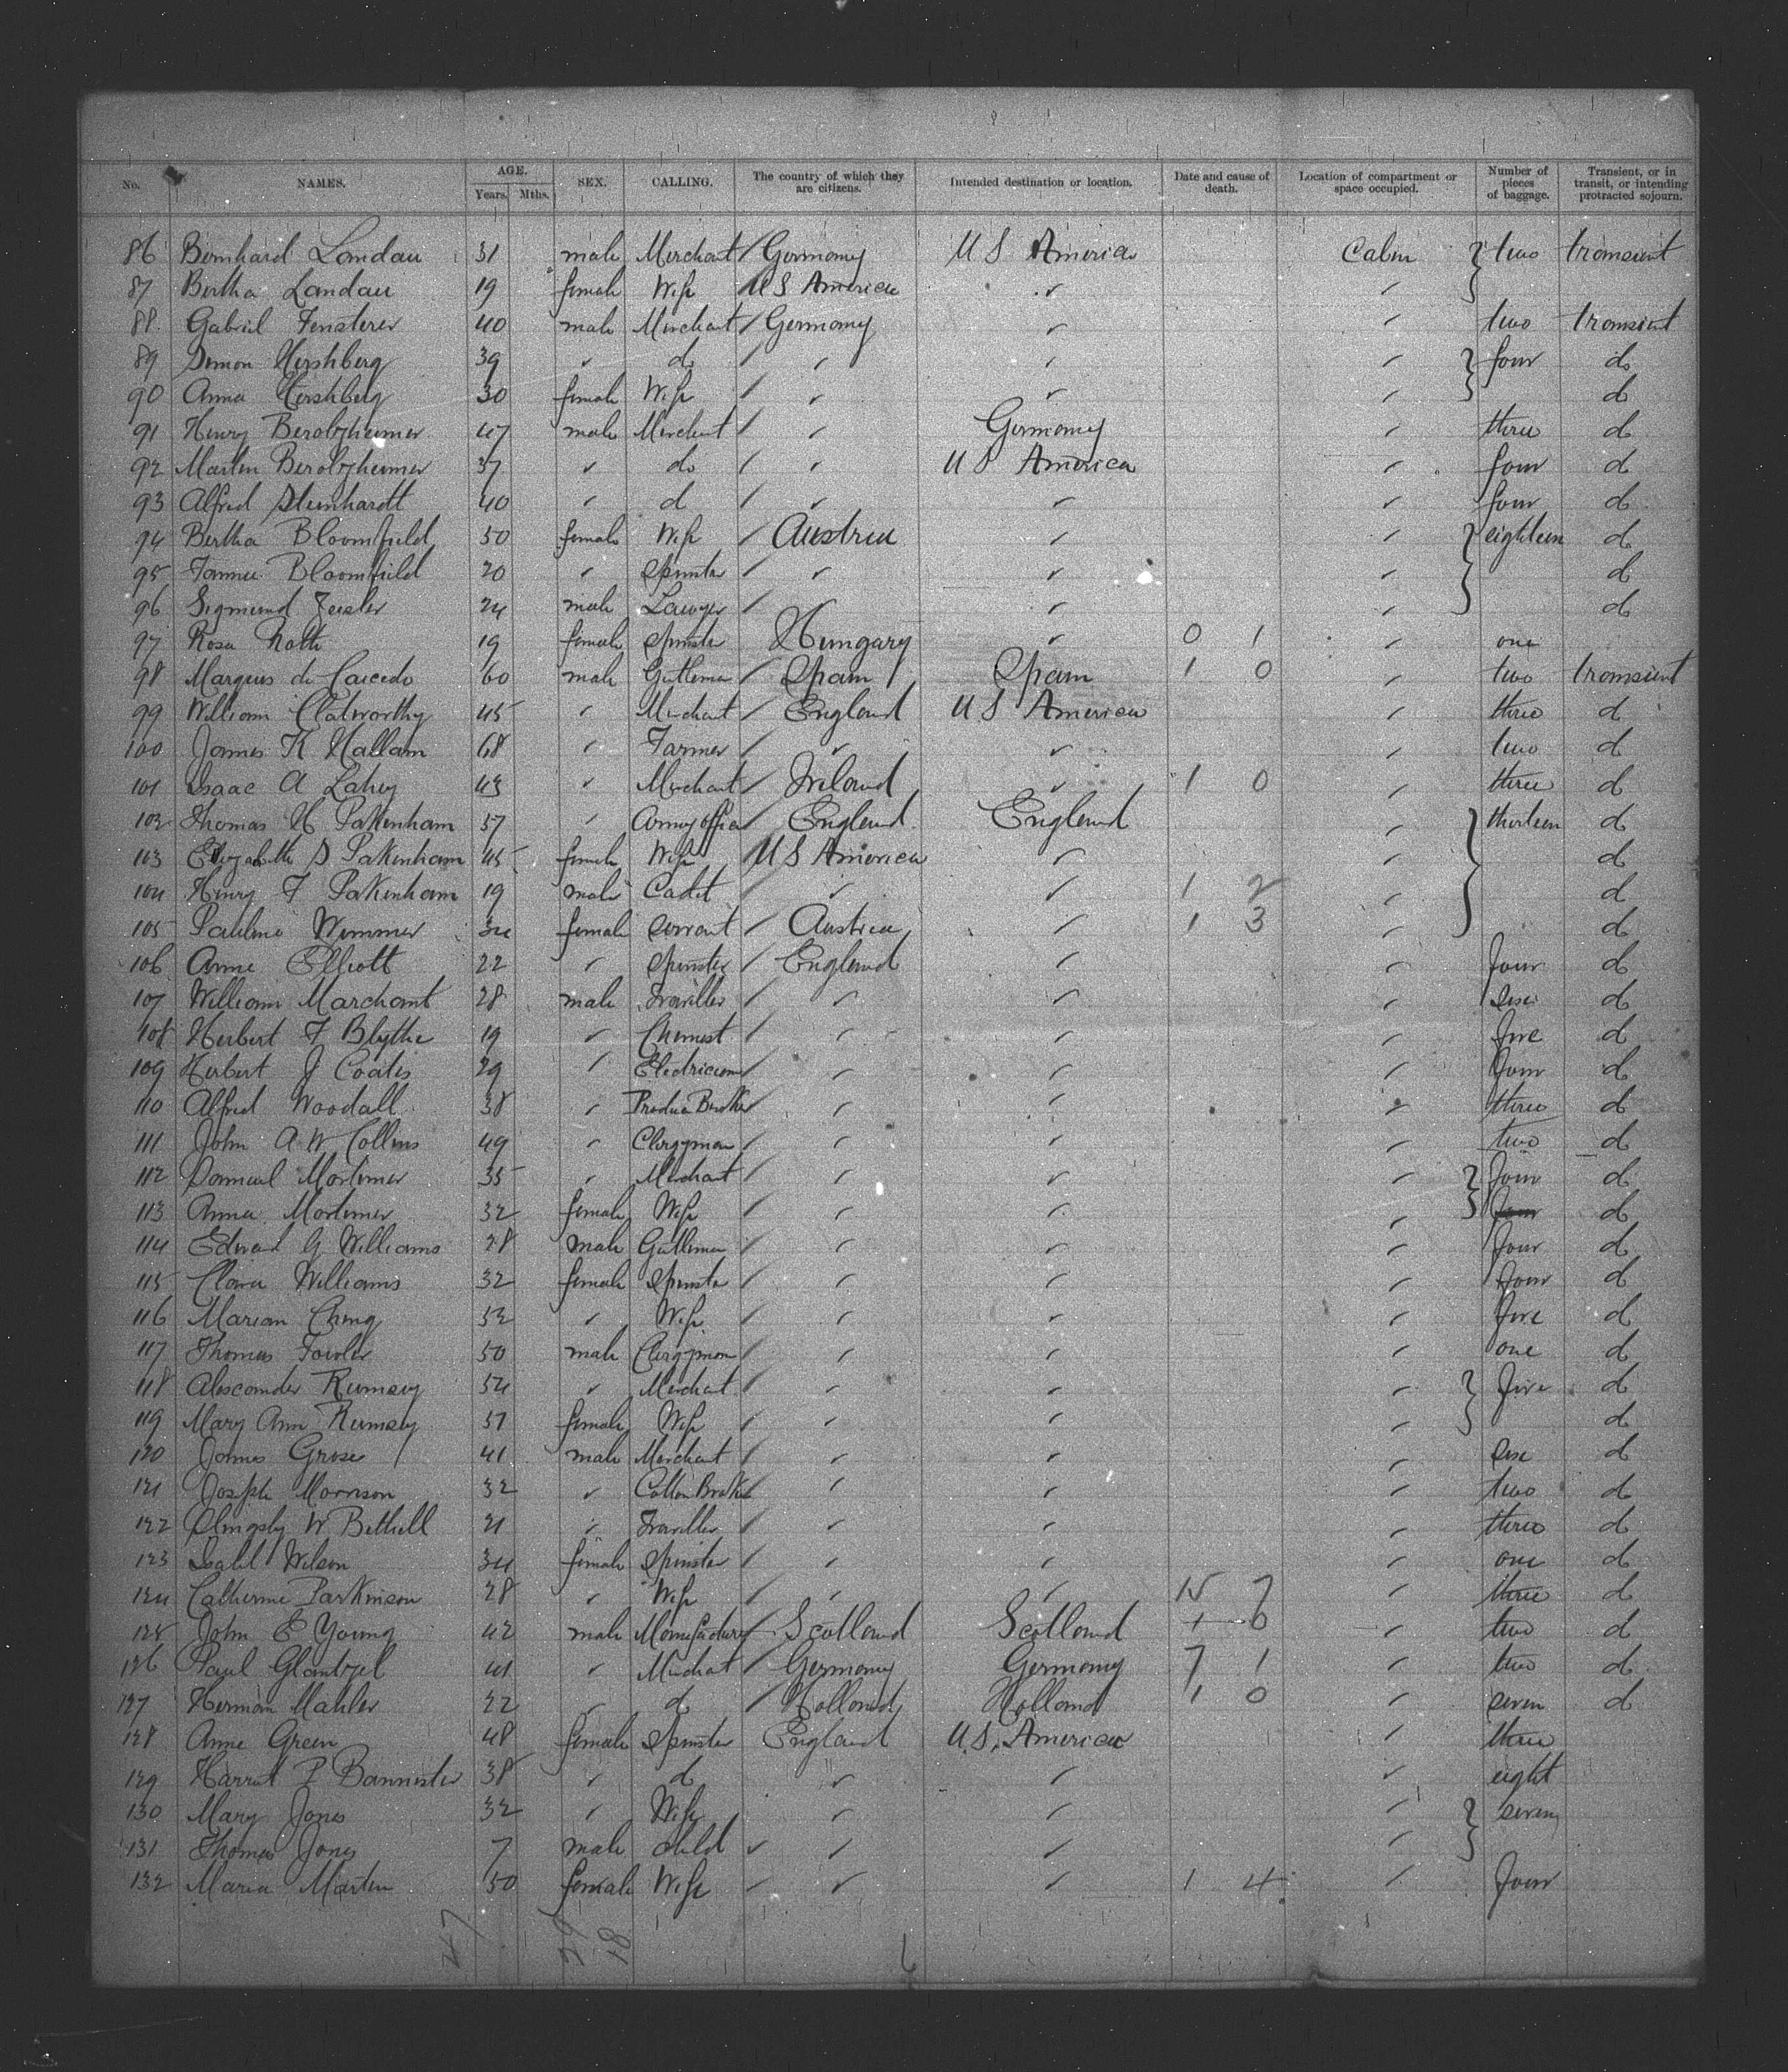 No. NAMES. AGE. Years. Mths. SEX. CALLING. The country of which they are citizens. Intended destination or location. Date and cause of death. Location of compartment or space occupied. Number of pieces of baggage. Transient, or in transit, or intending protracted sojourn.
86 Bernhard Landau 31 male Merchant / Germany U S America Cabin } two transient
87 Bertha Landau 19 female Wife / U S America ✓ ✓
88 Gabriel Fensterer 40 male Merchant / Germany ✓ ✓ two transient
89 Simon Hershberg 39 ✓ do / ✓ ✓ ✓ } four do
90 Anna Hershberg 30 female Wife / ✓ ✓ ✓ d
91 Henry Berolzheimer 47 male Merchant / ✓ Germany ✓ three d
92 Martin Berolzheimer 37 ✓ do / ✓ U S America ✓ four d
93 Alfred Steinhardt 40 ✓ d / ✓ ✓ ✓ four d
94 Bertha Bloomfield 50 female Wife / Austria ✓ ✓ } eighteen d
95 Fannie Bloomfield 20 ✓ Spinster / ✓ ✓ ✓ d
96 Sigmund Zeisler 24 male Lawyer / ✓ ✓ ✓ d
97 Rosa Roth 19 female Spinster Hungary ✓ 0 1 ✓ one
98 Marques de Caicedo 60 male Gentleman / Spain Spain 1 0 ✓ two transient
99 William Clatworthy 45 ✓ Merchant / England U S America ✓ three d
100 James K Hallam 68 ✓ Farmer / ✓ ✓ ✓ two d
101 Isaac A Lahey 43 ✓ Merchant / Ireland ✓ 1 0 ✓ three d
102 Thomas H Pakenham 57 ✓ Army officer / England England ✓ } thirteen d
103 Elizabeth S Pakenham 45 female Wife / U S America ✓ ✓ d
104 Henry F Pakenham 19 male Cadet / ✓ ✓ 1 2 ✓ d
105 Pauline Wimmer 34 female Servant / Austria ✓ 1 3 ✓ d
106 Anne Elliott 22 ✓ Spinster / England ✓ ✓ four d
107 William Marchant 28 male Traveller / ✓ ✓ ✓ six d
108 Herbert F Blythe 19 ✓ Chemist / ✓ ✓ ✓ five d
109 Herbert J Coates 29 ✓ Electrician / ✓ ✓ ✓ four d
110 Alfred Woodall 38 ✓ Produce Broker / ✓ ✓ ✓ three d
111 John A W Collins 49 ✓ Clergyman / ✓ ✓ ✓ two d
112 Samuel Mortimer 35 ✓ Merchant / ✓ ✓ ✓ } four d
113 Anna Mortimer 32 female Wife / ✓ ✓ ✓ four d
114 Edward G Williams 28 male Gentleman / ✓ ✓ ✓ four d
115 Clara Williams 32 female Spinster / ✓ ✓ ✓ four d
116 Marian Ching 32 ✓ Wife / ✓ ✓ ✓ five d
117 Thomas Fowler 50 male Clergyman / ✓ ✓ ✓ one d
118 Alexander Rumsey 54 ✓ Merchant / ✓ ✓ ✓ } five d
119 Mary Ann Rumsey 57 female Wife / ✓ ✓ ✓ d
120 James Grose 41 male Merchant / ✓ ✓ ✓ six d
121 Joseph Morrison 32 ✓ Cotton Broker / ✓ ✓ ✓ two d
122 Slingsby W Bethell 21 ✓ Traveller / ✓ ✓ ✓ three d
123 Isabel Wilson 34 female Spinster / ✓ ✓ ✓ one d
124 Catherine Parkinson 28 ✓ Wife / ✓ ✓ 15 7 ✓ three d
125 John E Young 42 male Manufacturer / Scotland Scotland 1 0 ✓ two d
126 Paul Glantzel 41 ✓ Merchant / Germany Germany 7 1 ✓ two d
127 Herman Mahler 22 ✓ d / Holland Holland 1 0 ✓ seven d
128 Anne Green 48 female Spinster England U.S. America ✓ three
129 Harriet P Bannister 38 ✓ d ✓ ✓ ✓ eight
130 Mary Jones 32 ✓ Wife ✓ ✓ ✓ } seven
131 Thomas Jones 7 male child ✓ ✓ ✓ ✓
132 Maria Martin 50 female Wife / ✓ ✓ 1 4 ✓ four
47 29 18